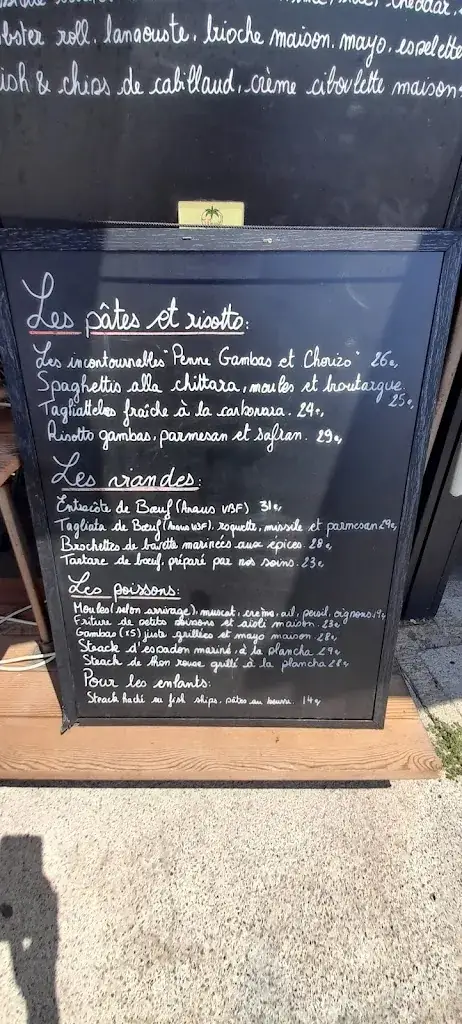 cheddar,
lobster roll, langouste, brioche maison, mayo, espelette
fish & chips de cabillaud, crème ciboulette maison
Les pâtes et risotto:
Les incontournables "Penne Gambas et Chorizo" 26€,
Spaghettis alla chittara, moules et boutargue.
25€,
Tagliatelles fraîche à la carbonara. 24€,
Risotto gambas, parmesan et safran. 29€,
Les viandes:
Entrecôte de Bœuf (Anaus VBF) 31€,
Tagliata de Bœuf (Anaus VBF), roquette, missile et parmesan 29€,
Brochettes de bavette marinées aux épices. 28€,
Tartare de bœuf, préparé par nos soins. 23€,
Les poissons:
Moules (selon arrivage), muscat, crème, ail, persil, oignons 19€
Friture de petits poissons et aïoli maison. 23€,
Gambas (x5) juste grillées et mayo maison 28€,
Steack d'espadon mariné, à la plancha. 29€,
Steack de thon rouge grillé à la plancha 28€,
Pour les enfants:
Steack haché ou fish ships, pâtes au beurre. 14€,